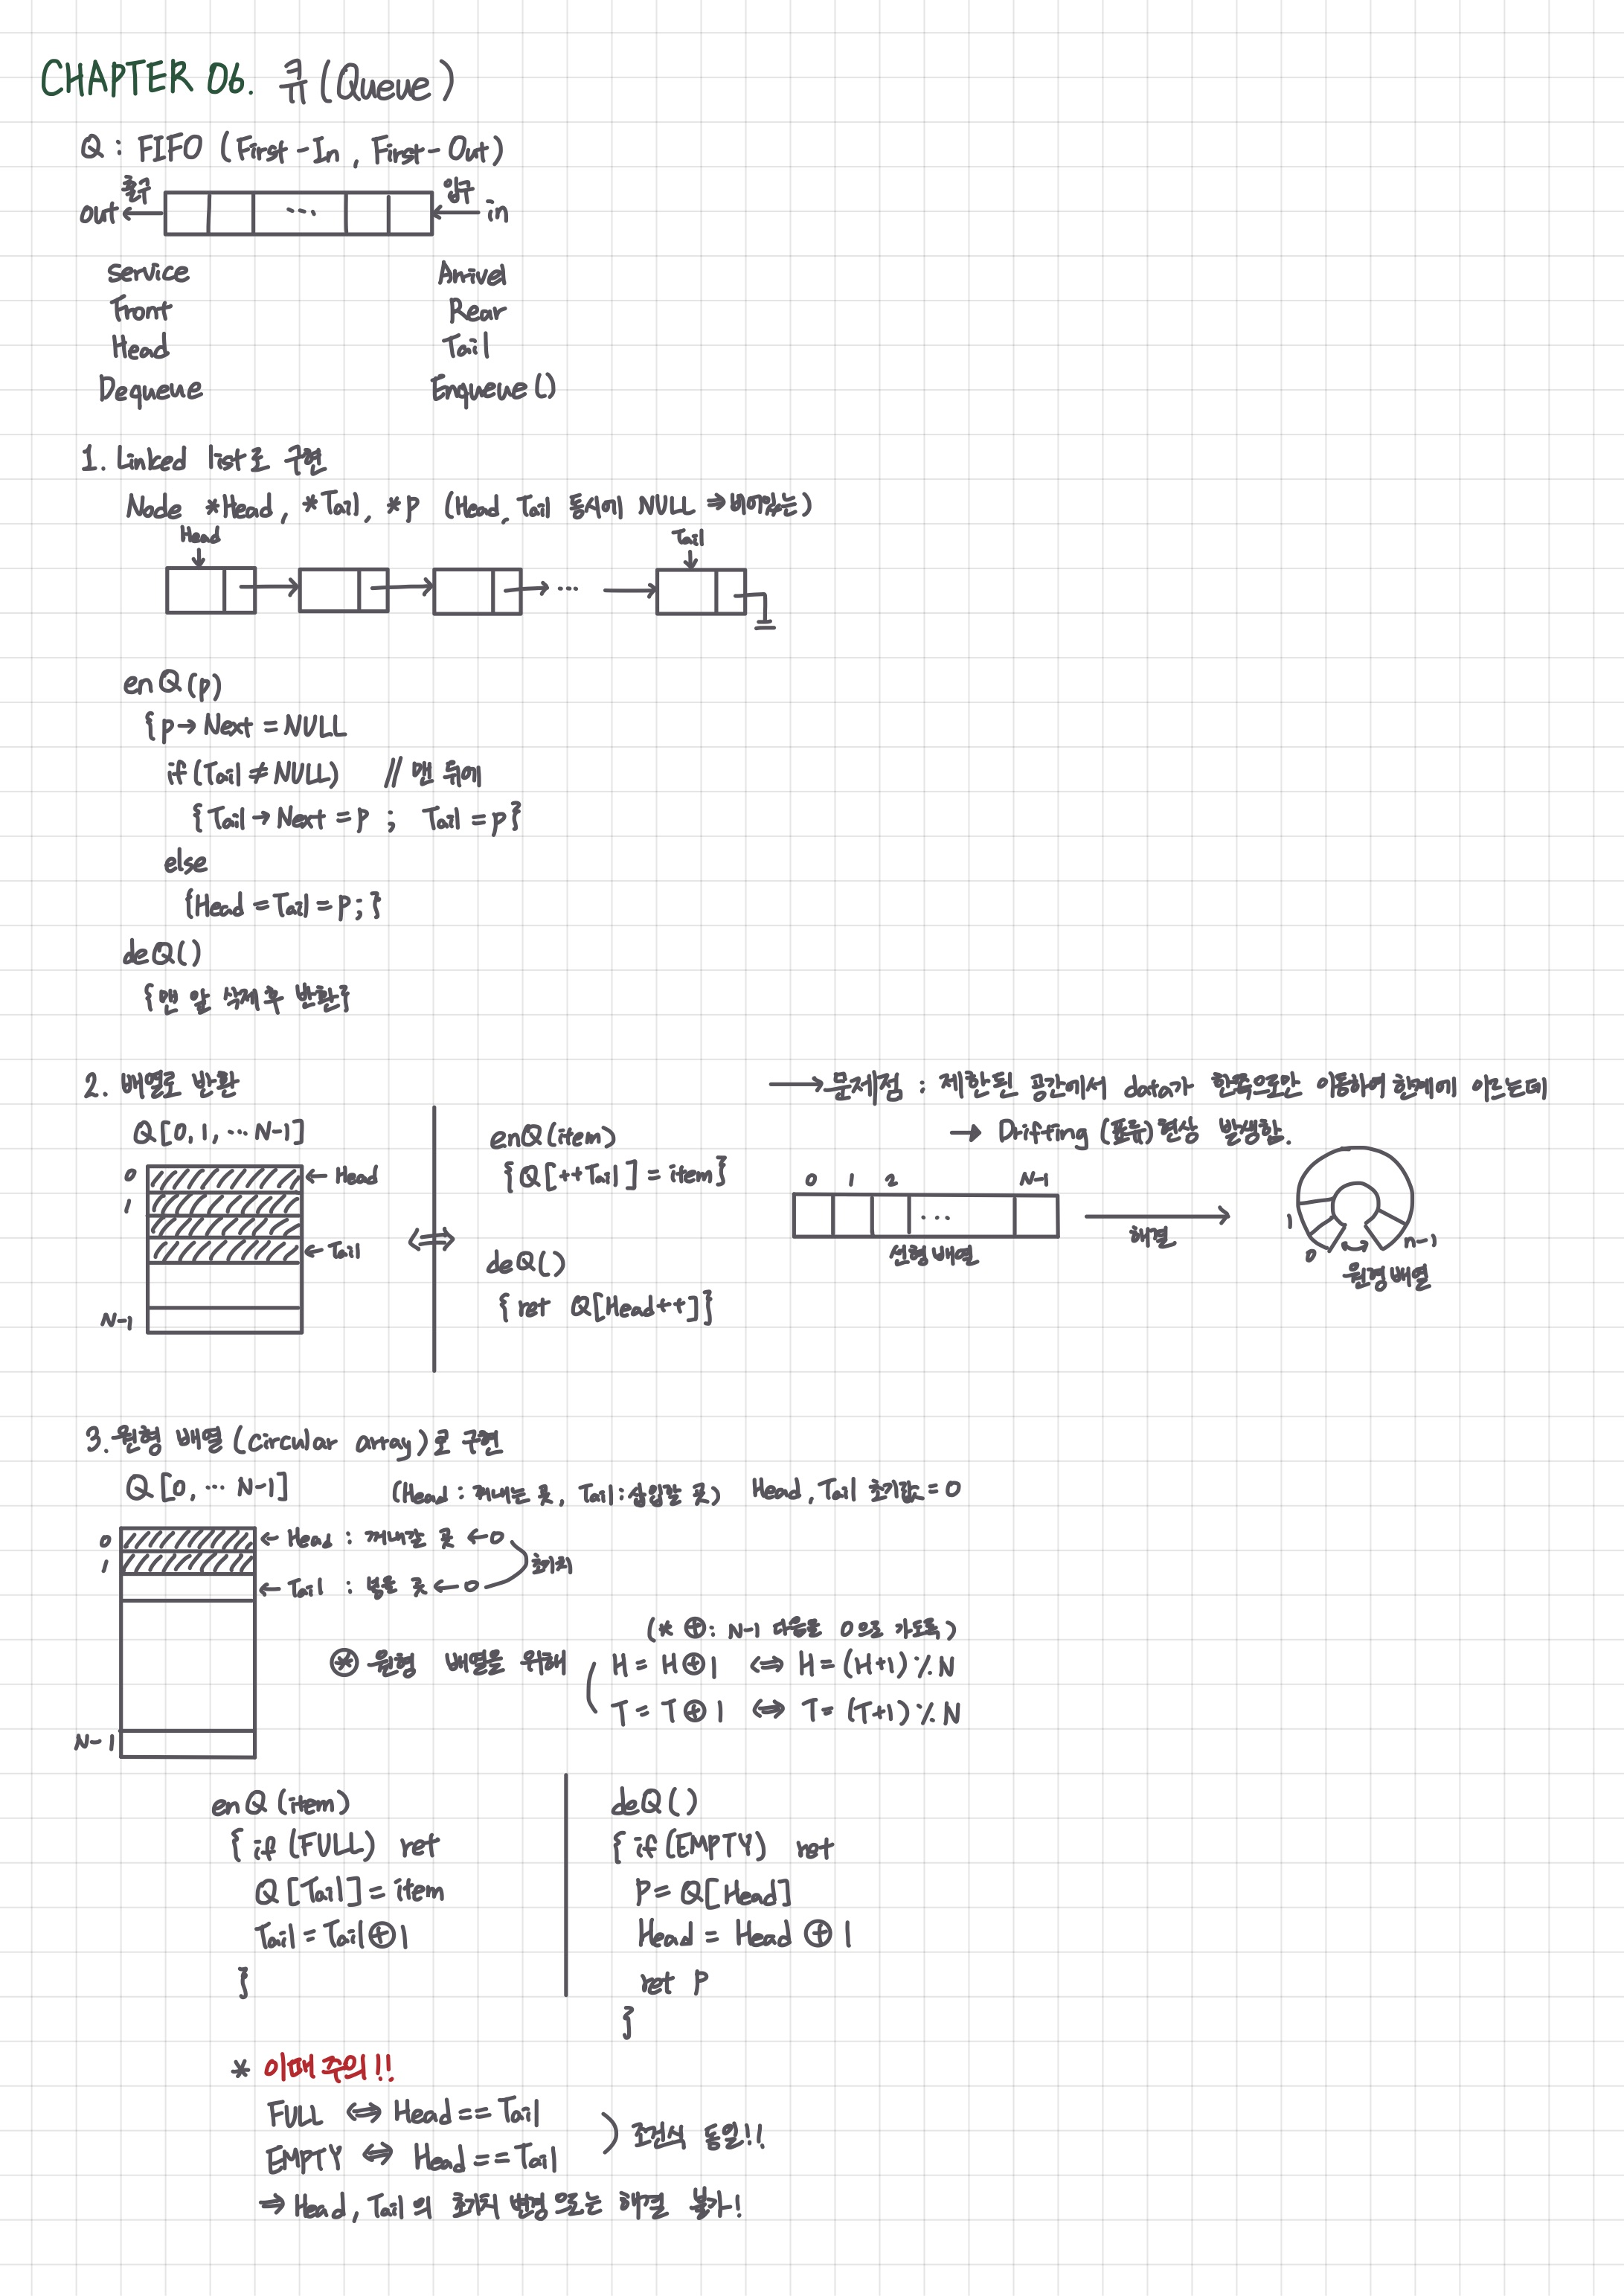 CHAPTER 06. 큐 (Queue)
Q : FIFO (First-In, First-Out)
출구 입구
out ← ... ← in
Service Arrival
Front Rear
Head Tail
Dequeue Enqueue()
1. Linked list로 구현
Node *Head, *Tail, *p (Head, Tail 동시에 NULL ⇒ 비어있는)
Head Tail
...
enQ(p)
{p→Next = NULL
if(Tail ≠ NULL) // 맨 뒤에
{Tail → Next = p ; Tail = p}
else
{Head = Tail = p;}
deQ()
{맨 앞 삭제 후 반환}
2. 배열로 반환
Q[0, 1, ... N-1]
0 ← Head
1
← Tail
N-1
⇔
enQ(item)
{Q[++Tail] = item}
deQ()
{ret Q[Head++]}
→ 문제점 : 제한된 공간에서 data가 한쪽으로만 이동하여 한계에 이르는데
→ Drifting (표류) 현상 발생함.
0 1 2 N-1
...
선형 배열
→ 해결
1 0 n-1
원형 배열
3. 원형 배열 (circular array)로 구현
Q[0, ... N-1] (Head : 꺼내는 곳, Tail : 삽입할 곳) Head, Tail 초기값 = 0
0 ← Head : 꺼내갈 곳 ← 0
1 초기치
← Tail : 넣을 곳 ← 0
N-1
(* ⊕ : N-1 다음을 0으로 가도록)
⊛ 원형 배열을 위해 H = H ⊕ 1 ⇔ H = (H+1) % N
T = T ⊕ 1 ⇔ T = (T+1) % N
enQ(item)
{ if (FULL) ret
Q[Tail] = item
Tail = Tail ⊕ 1
}
deQ()
{ if(EMPTY) ret
P = Q[Head]
Head = Head ⊕ 1
ret P
}
* 이때 주의!!
FULL ⇔ Head == Tail
EMPTY ⇔ Head == Tail
) 조건식 동일!!
⇒ Head, Tail의 초기치 변경으로는 해결 불가!